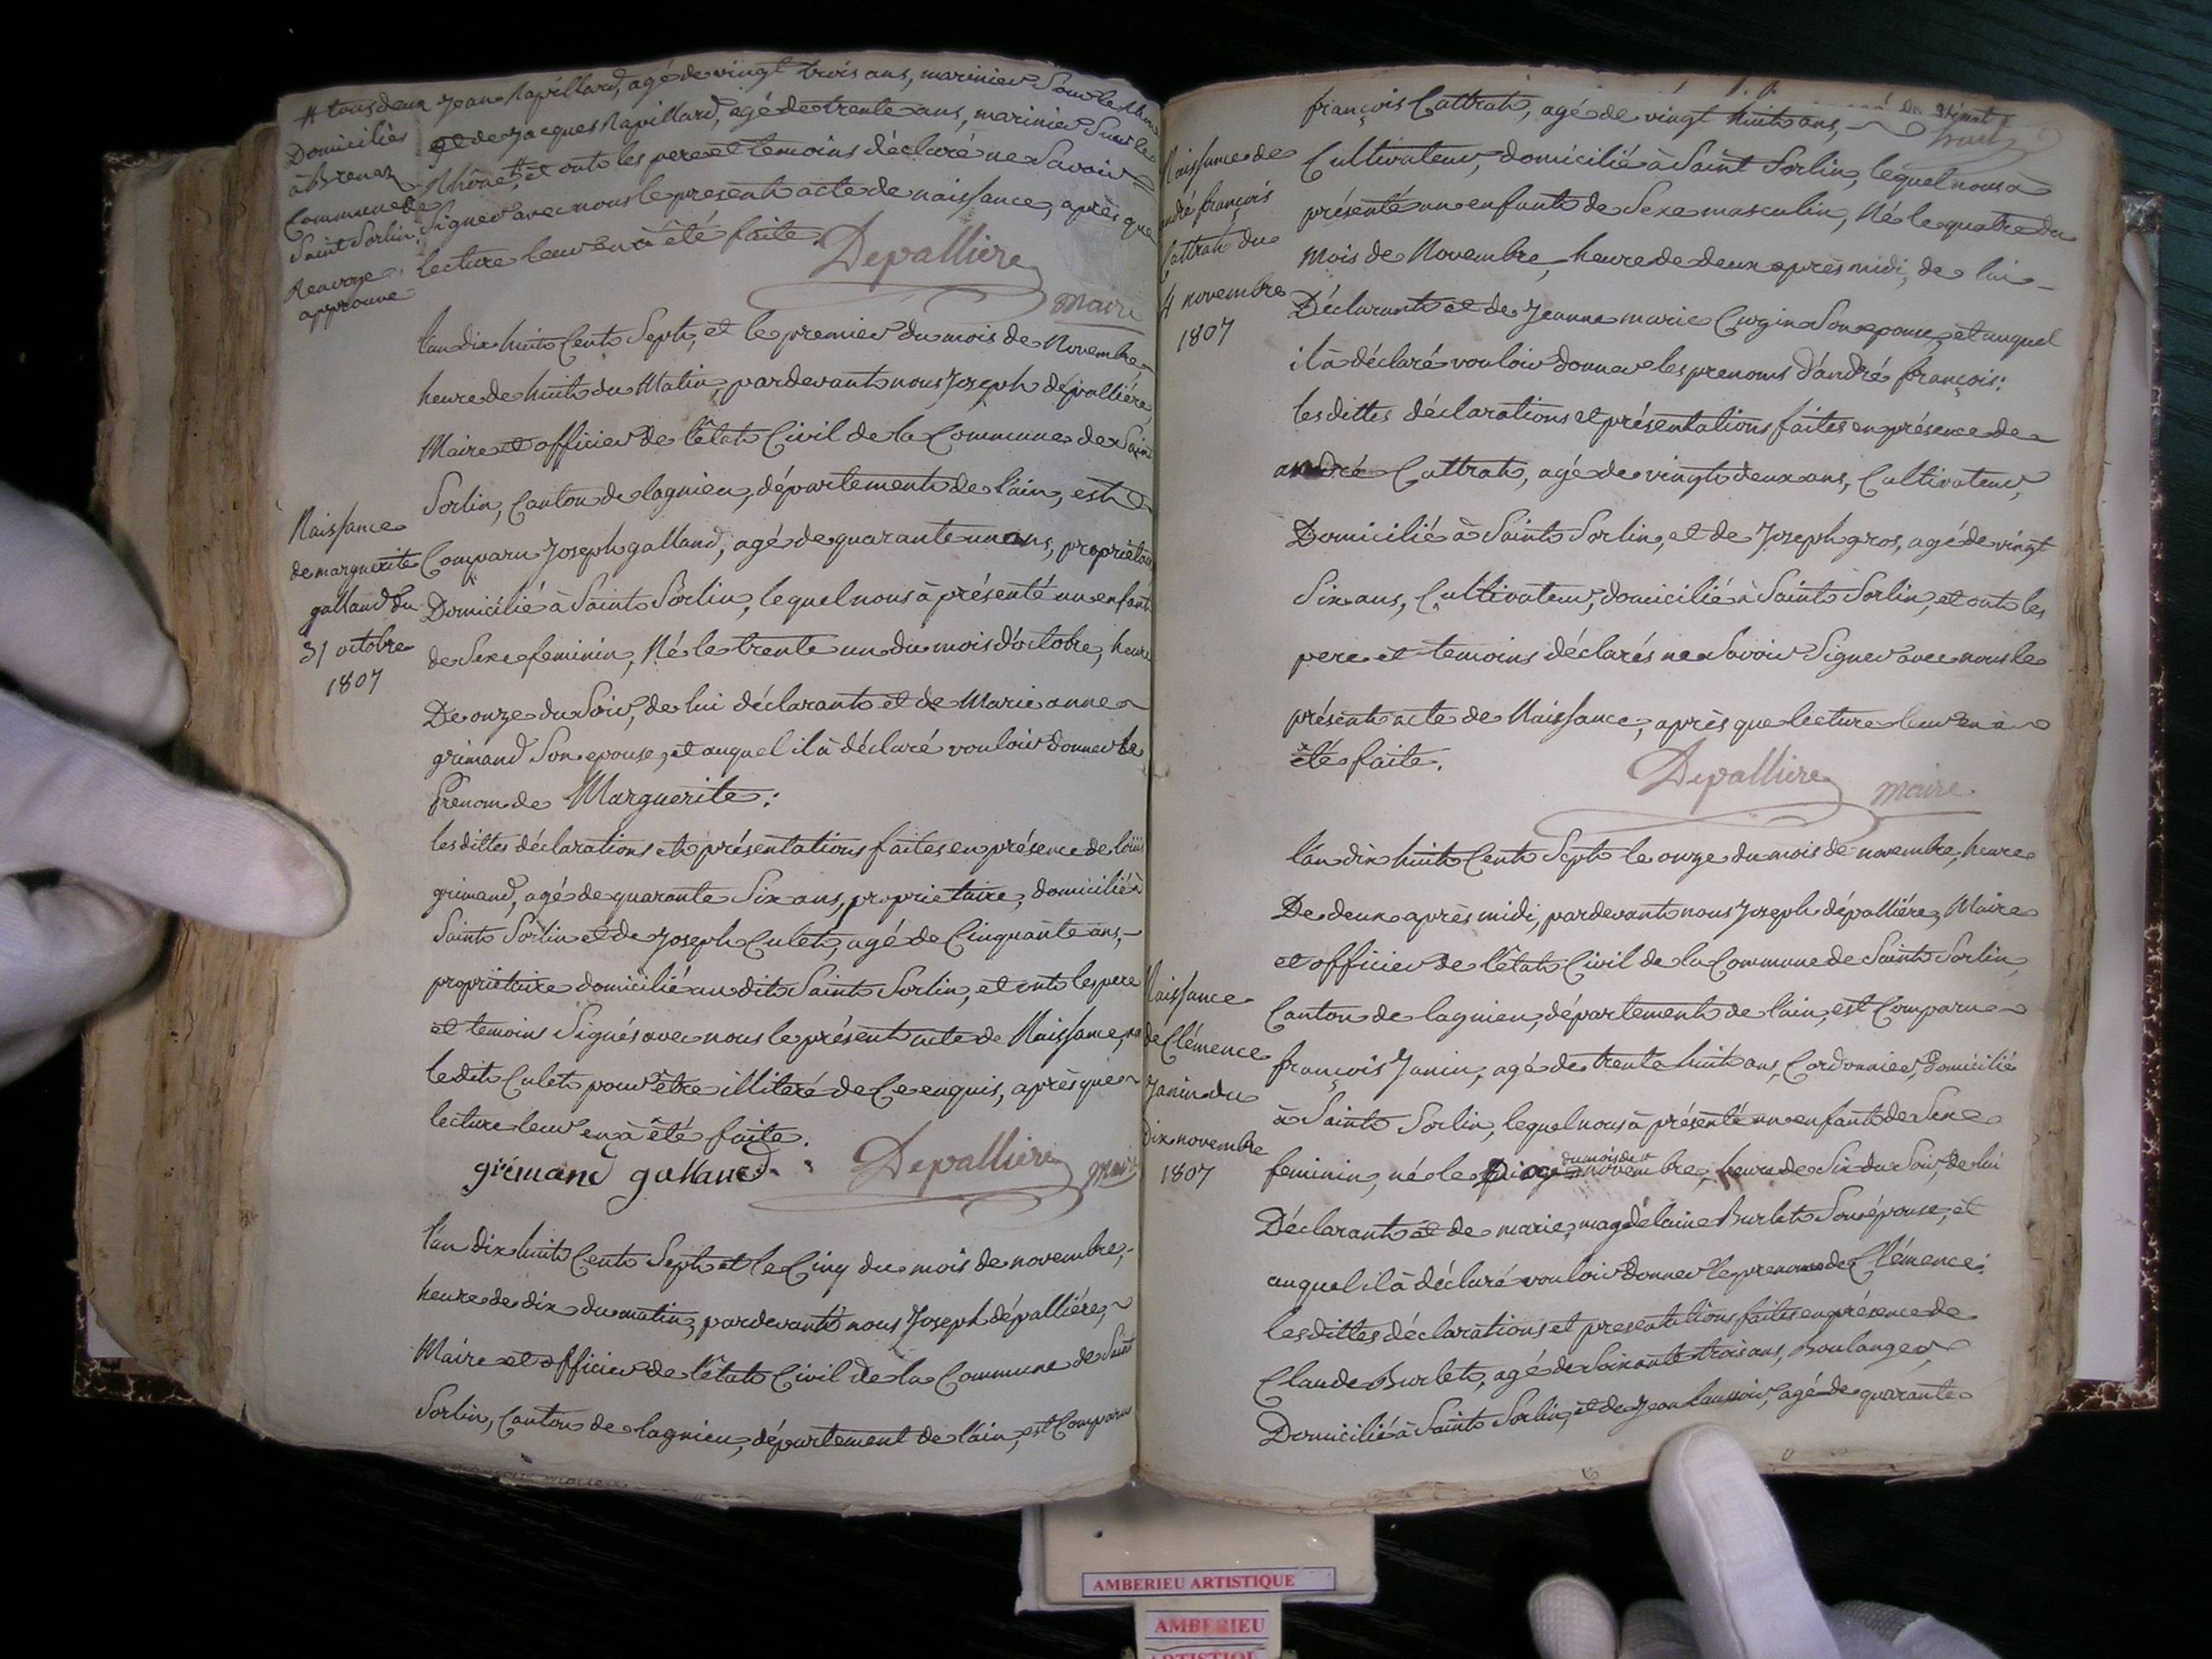 # tous deux
Domiciliés
à Brenaz
Commune de
Saint Sorlin.
Renvoye
approuvé
Jean Rapillard, agé de vingt trois ans, marinier Sur le Rhone
et de Jacques Rapillard, agé de trente ans, marinier Sur le
Rhône #, et ont les pere et temoins déclaré ne Savoir
Signer avec nous le present acte de naissance, après que
lecture leur en à été faite.
Depalliere
maire
l'an dix huit Cent Sept, et le premier du mois de Novembre,
heure de huit du Matin, pardevant nous Joseph dépalliére,
Maire et officier de l'êtat Civil de la Commune de Saint
Sorlin, Canton de lagnieu, département de l'ain, est
Naissance
de marguerite
galland du
31 octobre
1807
Comparu Joseph galland, agé de quarante un ans, propriétaire
Domicilié à Saint Sorlin, lequel nous à présenté un enfant
de Sexe feminin, Né le trente un du mois d'octobre, heure
De onze du Soir, de lui déclarant et de Marie anne
grimand Son epouse, et auquel il à déclaré vouloir donner le
Prenom de Marguerite :
les dittes déclarations et présentations faites en présence de louis
grimand, agé de quarante Six ans, propriétaire, domicilié à
Saint Sorlin et de Joseph Culet, agé de Cinquante ans,
propriétaire domicilié au dit Saint Sorlin, et ont les pere
et temoins Signés avec nous le présent acte de Naissance,
ledit Culet pour être illiteré de Ce enquis, après que
lecture leur en à été faite.
grimand galland
Depalliere
maire
l'an dix huit Cent Sept et le Cinq du mois de novembre,
heure de dix du matin, pardevant nous Joseph dépalliére,
Maire et officier de l'êtat Civil de la Commune de Saint
Sorlin, Canton de lagnieu, département de l'ain, est Comparu
françois Cattrat, agé de vingt huit ans,
Naissance de
andré françois
Cattrat du
4 novembre
1807
Cultivateur, domicilié à Saint Sorlin, lequel nous à
présenté un enfant de Sexe masculin, Né le quatre du
mois de Novembre, heure de deux après midi, de lui
Déclarant et de Jeanne marie Curgin Son epouse, et auquel
il à déclaré vouloir donner les prenoms d'andré françois :
les dittes déclarations et présentations faites en présence de
andré Cattrat, agé de vingt deux ans, Cultivateur,
Domicilié à Saint Sorlin, et de Joseph gros, agé de vingt
Six ans, Cultivateur, domicilié à Saint Sorlin, et ont les
pere et temoins déclarés ne Savoir Signer avec nous le
présent acte de Naissance, après que lecture leur en à
été faite.
Depalliere
maire.
l'an dix huit Cent Sept le onze du mois de novembre, heure
De deux après midi, pardevant nous Joseph dépalliére, Maire
et officier de l'êtat Civil de la Commune de Saint Sorlin,
Naissance
de Clémence
Janin du
dix novembre
1807
Canton de lagnieu, département de l'ain, est Comparu
françois Janin, agé de trente huit ans, Cordonnier, Domicilié
à Saint Sorlin, lequel nous à présenté un enfant de Sexe
feminin, né le dix du mois de novembre, heure de Six du Soir, de lui
Déclarant et de marie magdélaine Burlet Son épouse, et
auquel il à déclaré vouloir donner le prenom de Clémence :
les dittes déclarations et presentations faites en présence de
Claude Burlet, agé de Soixante trois ans, Boulanger,
Domicilié à Saint Sorlin, et de Jean agé de quarante
AMBERIEU ARTISTIQUE
AMBERIEU
ARTISTIQUE